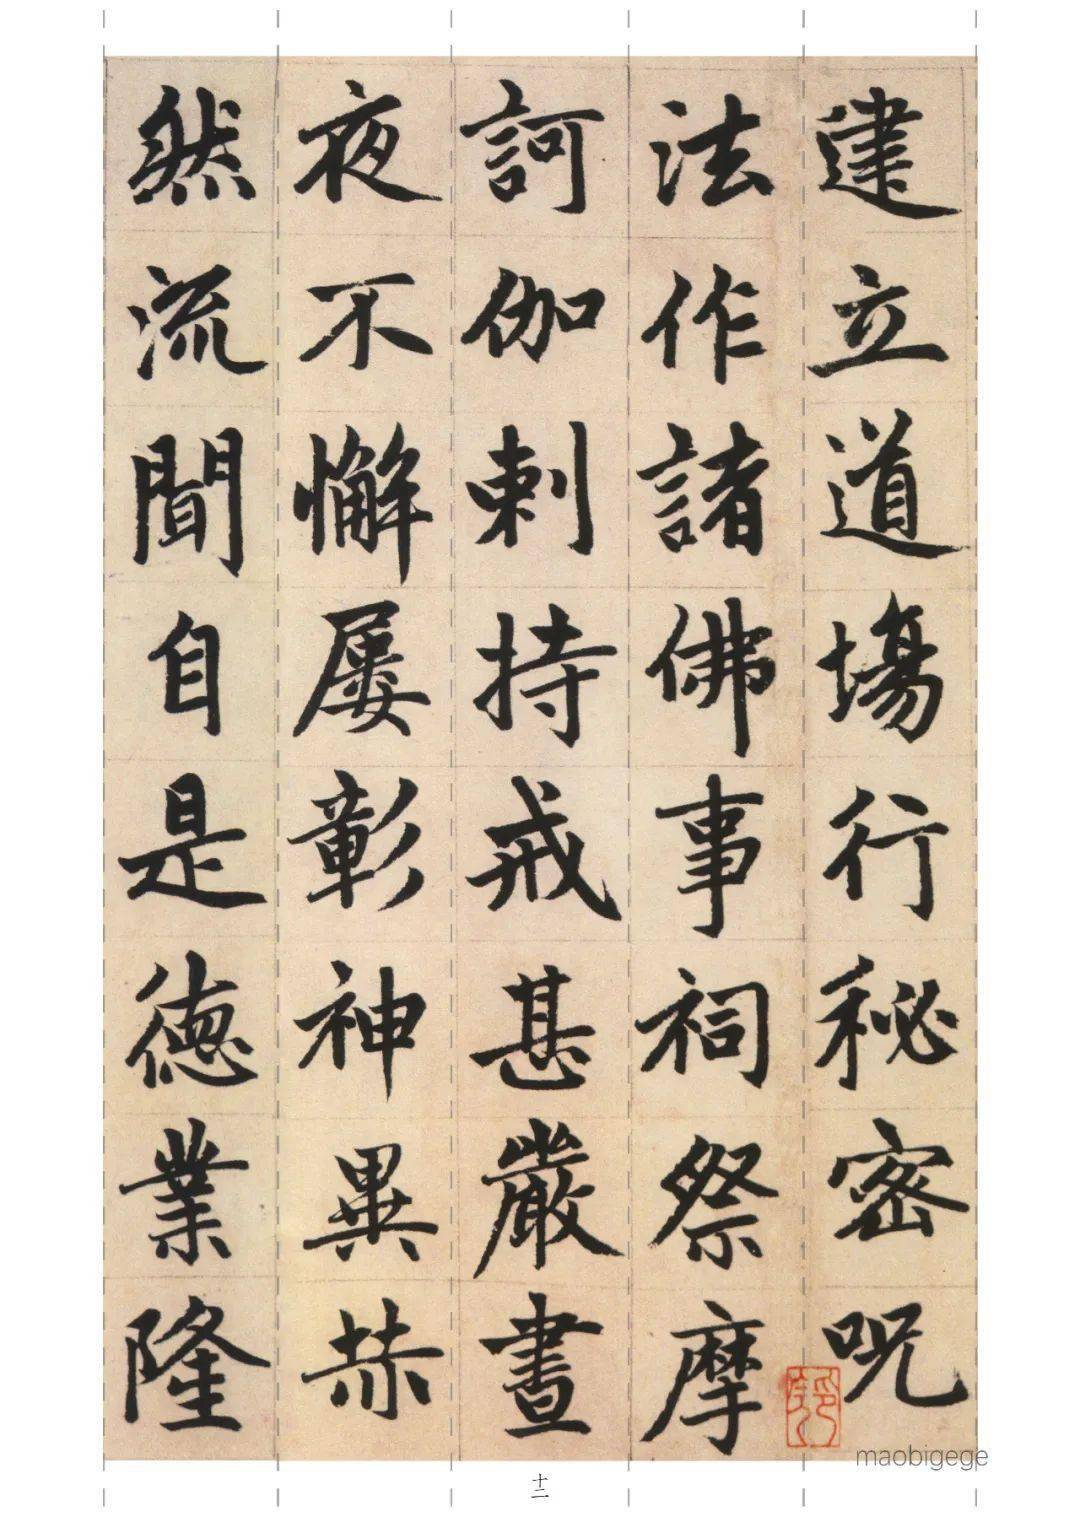 建立道場行秘密呪
法作諸佛事祠祭摩
訶伽剌持戒甚嚴晝
夜不懈屢彰神異赫
然流聞自是德業隆
maobigege
十二